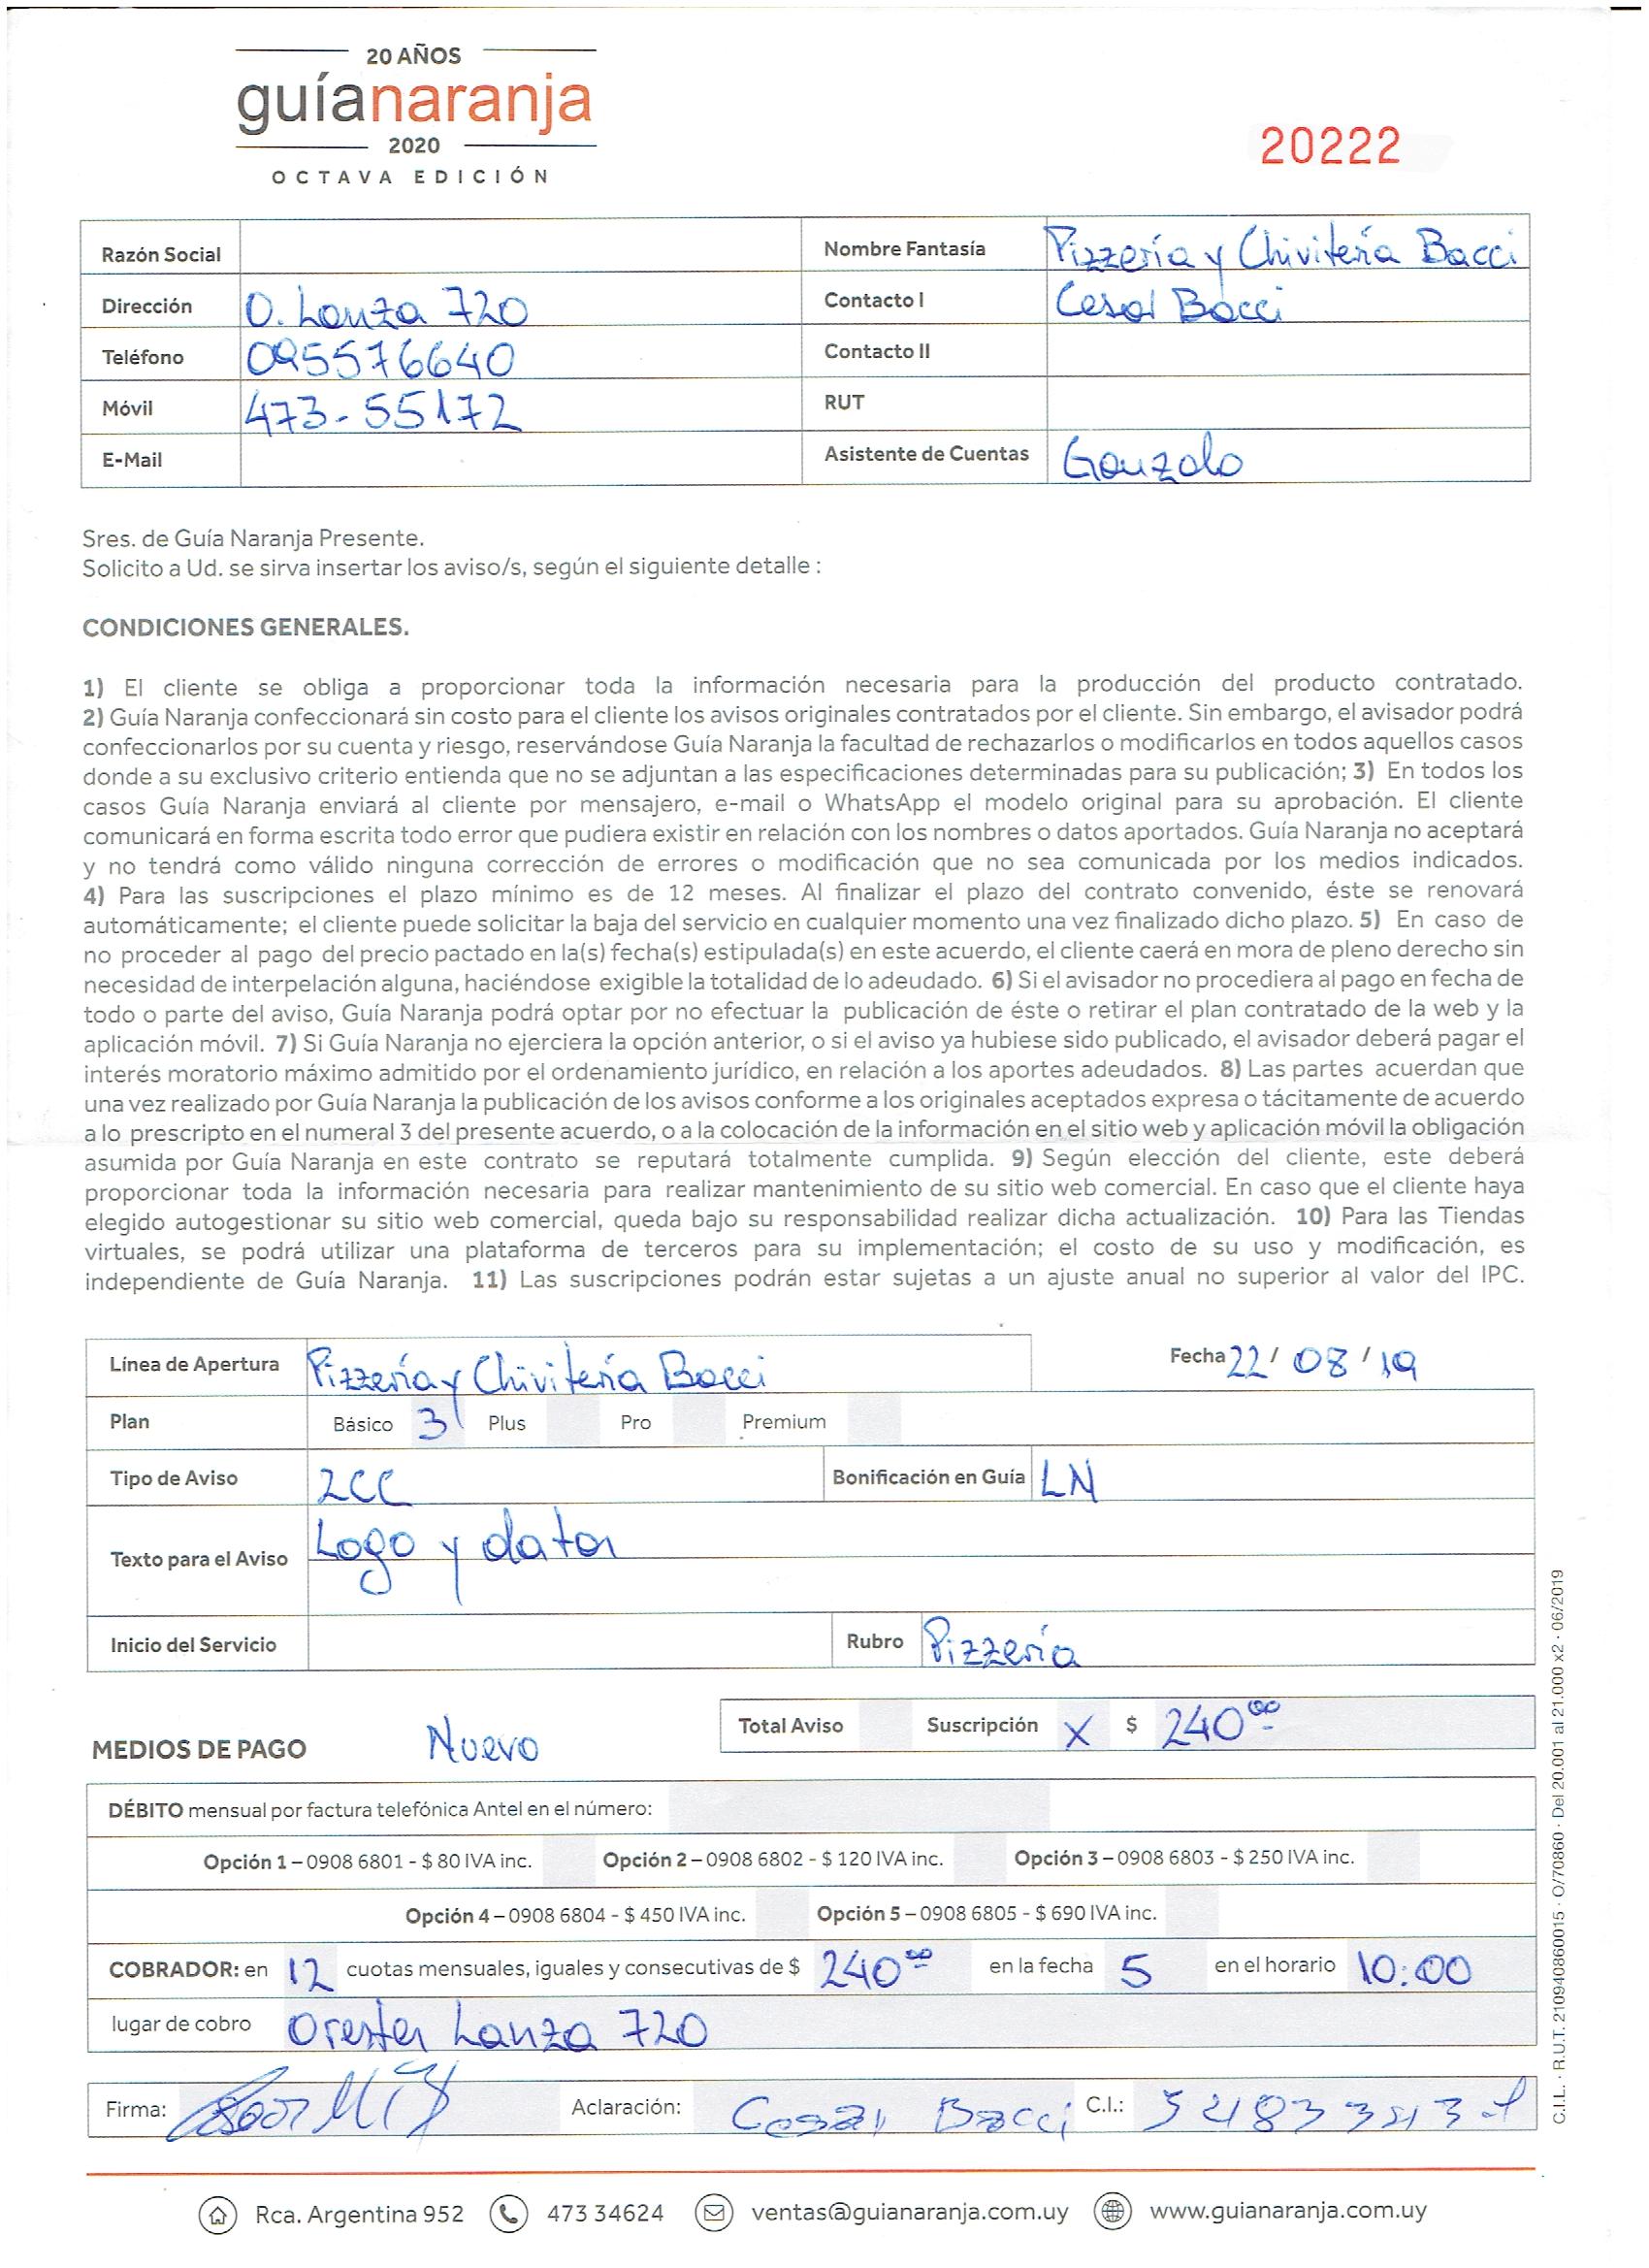 20 AÑOS
guíanaranja
2020
OCTAVA EDICIÓN
20222
Razón Social
Nombre Fantasía Pizzería y Chivitería Bacci
Dirección O. Lanza 720
Contacto I Cesar Bacci
Teléfono 095576640
Contacto II
Móvil 473-55172
RUT
E-Mail
Asistente de Cuentas Gonzalo
Sres. de Guía Naranja Presente.
Solicito a Ud. se sirva insertar los aviso/s, según el siguiente detalle :
CONDICIONES GENERALES.
1) El cliente se obliga a proporcionar toda la información necesaria para la producción del producto contratado.
2) Guía Naranja confeccionará sin costo para el cliente los avisos originales contratados por el cliente. Sin embargo, el avisador podrá
confeccionarlos por su cuenta y riesgo, reservándose Guía Naranja la facultad de rechazarlos o modificarlos en todos aquellos casos
donde a su exclusivo criterio entienda que no se adjuntan a las especificaciones determinadas para su publicación; 3) En todos los
casos Guía Naranja enviará al cliente por mensajero, e-mail o WhatsApp el modelo original para su aprobación. El cliente
comunicará en forma escrita todo error que pudiera existir en relación con los nombres o datos aportados. Guía Naranja no aceptará
y no tendrá como válido ninguna corrección de errores o modificación que no sea comunicada por los medios indicados.
4) Para las suscripciones el plazo mínimo es de 12 meses. Al finalizar el plazo del contrato convenido, éste se renovará
automáticamente; el cliente puede solicitar la baja del servicio en cualquier momento una vez finalizado dicho plazo. 5) En caso de
no proceder al pago del precio pactado en la(s) fecha(s) estipulada(s) en este acuerdo, el cliente caerá en mora de pleno derecho sin
necesidad de interpelación alguna, haciéndose exigible la totalidad de lo adeudado. 6) Si el avisador no procediera al pago en fecha de
todo o parte del aviso, Guía Naranja podrá optar por no efectuar la publicación de éste o retirar el plan contratado de la web y la
aplicación móvil. 7) Si Guía Naranja no ejerciera la opción anterior, o si el aviso ya hubiese sido publicado, el avisador deberá pagar el
interés moratorio máximo admitido por el ordenamiento jurídico, en relación a los aportes adeudados. 8) Las partes acuerdan que
una vez realizado por Guía Naranja la publicación de los avisos conforme a los originales aceptados expresa o tácitamente de acuerdo
a lo prescripto en el numeral 3 del presente acuerdo, o a la colocación de la información en el sitio web y aplicación móvil la obligación
asumida por Guía Naranja en este contrato se reputará totalmente cumplida. 9) Según elección del cliente, este deberá
proporcionar toda la información necesaria para realizar mantenimiento de su sitio web comercial. En caso que el cliente haya
elegido autogestionar su sitio web comercial, queda bajo su responsabilidad realizar dicha actualización. 10) Para las Tiendas
virtuales, se podrá utilizar una plataforma de terceros para su implementación; el costo de su uso y modificación, es
independiente de Guía Naranja. 11) Las suscripciones podrán estar sujetas a un ajuste anual no superior al valor del IPC.
Línea de Apertura Pizzería y Chivitería Bacci
Fecha 22 / 08 / 19
Plan Básico 3 Plus Pro Premium
Tipo de Aviso 2CC
Bonificación en Guía LN
Texto para el Aviso Logo y datos
Inicio del Servicio
Rubro Pizzería
MEDIOS DE PAGO Nuevo
Total Aviso Suscripción X $ 240⁰⁰
DÉBITO mensual por factura telefónica Antel en el número:
Opción 1 – 0908 6801 - $ 80 IVA inc. Opción 2 – 0908 6802 - $ 120 IVA inc. Opción 3 – 0908 6803 - $ 250 IVA inc.
Opción 4 – 0908 6804 - $ 450 IVA inc. Opción 5 – 0908 6805 - $ 690 IVA inc.
COBRADOR: en 12 cuotas mensuales, iguales y consecutivas de $ 240⁰⁰ en la fecha 5 en el horario 10:00
lugar de cobro Orestes Lanza 720
Firma: Aclaración: Cesar Bacci C.I.:
Rca. Argentina 952 473 34624 ventas@guianaranja.com.uy www.guianaranja.com.uy
C.I.L. · R.U.T. 210940860015 · O/70860 · Del 20.001 al 21.000 x2 · 06/2019